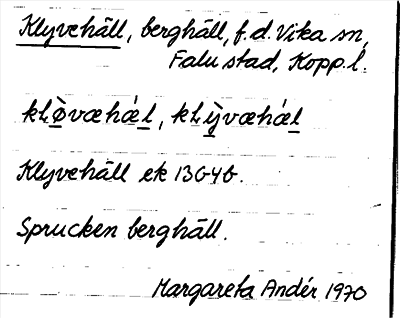 Klyvehäll, berghäll, f.d. Vika sn,
Falu stad, Kopp.l.
Klyvehäll ek 13G4b.
Sprucken berghäll.
Margareta Andér 1970